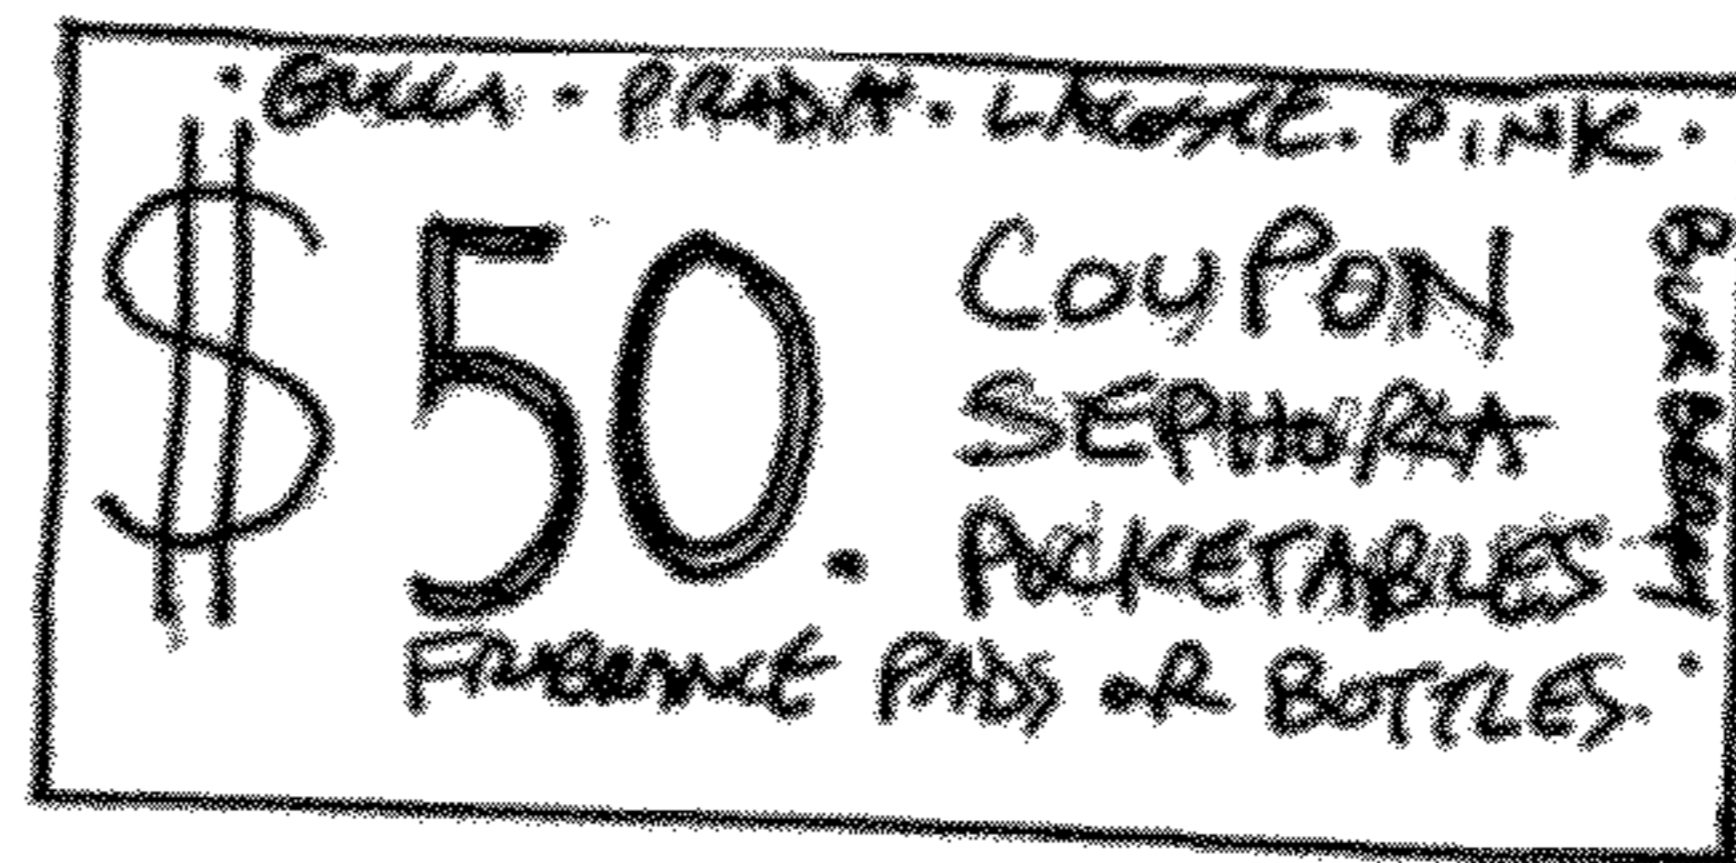 · GUCCI · PRADA · LACOSTE · PINK ·
$50.
COUPON
SEPHORA
POCKETABLES
FRAGRANCE PADS OR BOTTLES.